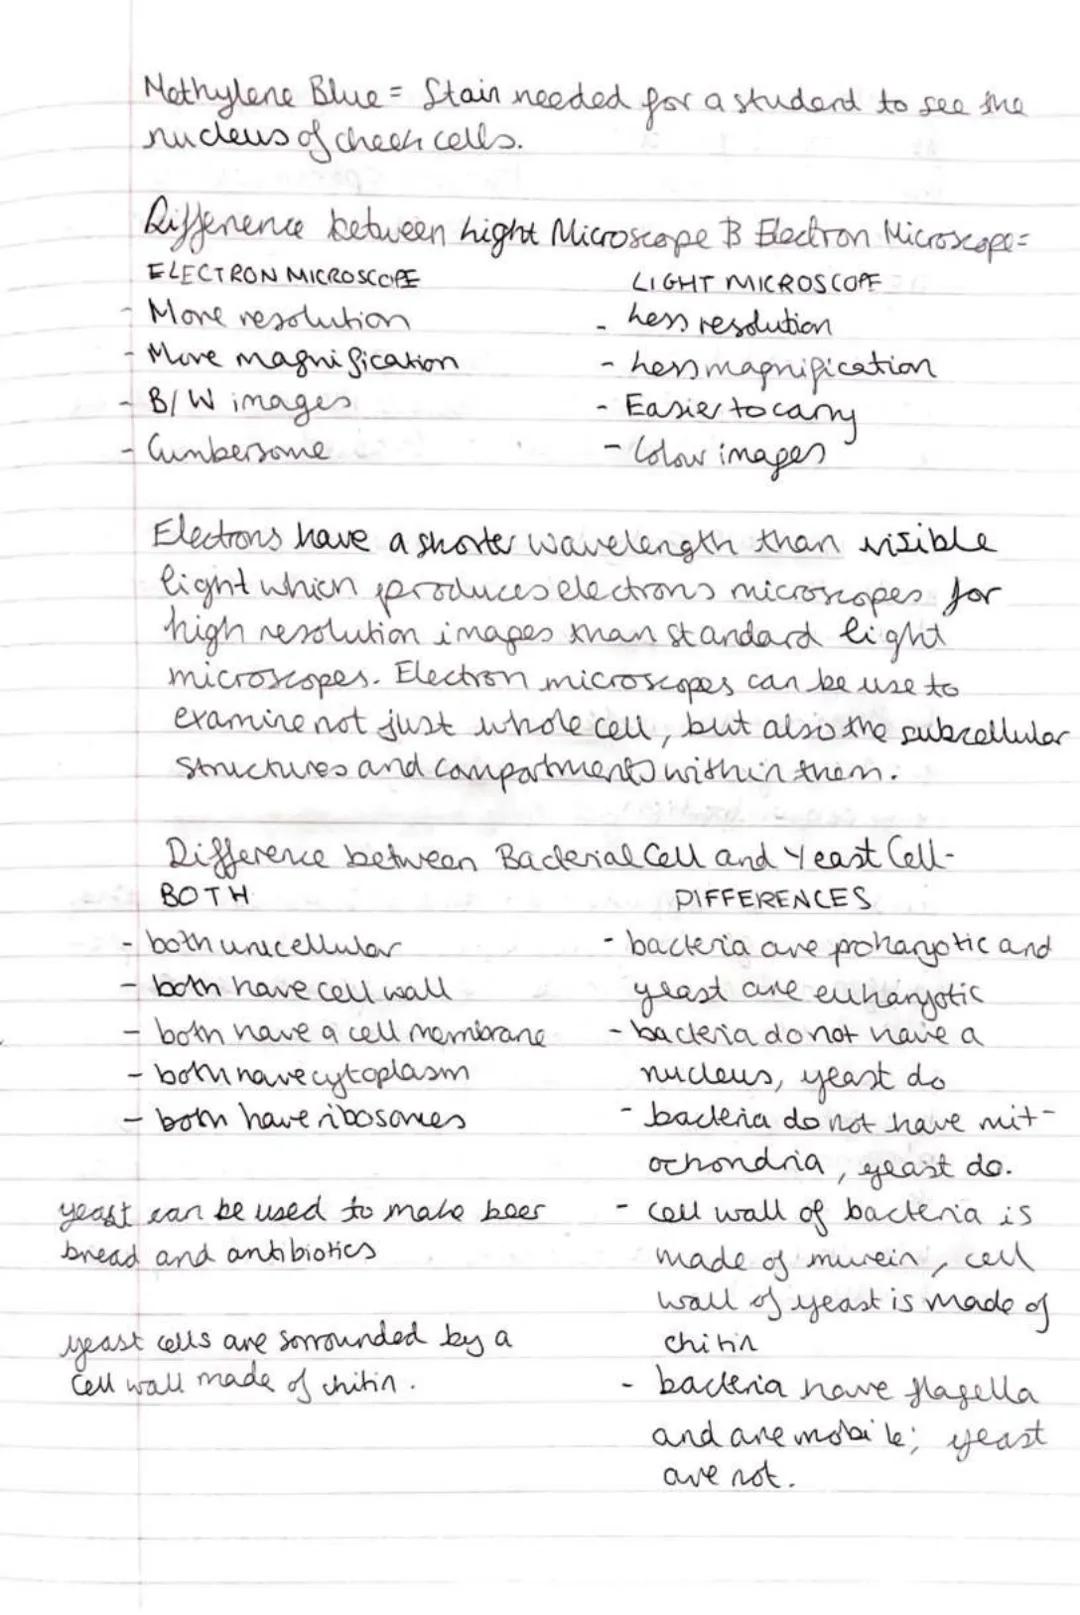 Methylene Blue = Stain needed for a student to see the
nucleus of cheek cells.
Difference between Light Microscope & Electron Microscope=
ELECTRON MICROSCOPE
- More resolution
- More magnification
- B/W images
- Cumbersome
LIGHT MICROSCOPE
- Less resolution
- Less magnification
- Easier to carry
- Colour images
Electrons have a shorter wavelength than visible
light which produces electrons microscopes for
high resolution images than standard light
microscopes. Electron microscopes can be use to
examine not just whole cell, but also the subcellular
structures and compartments within them.
Difference between Bacterial Cell and Yeast Cell-
BOTH
- both unicellular
- both have cell wall
- both have a cell membrane
- both have cytoplasm
- both have ribosomes
yeast can be used to make beer
bread and antibiotics
yeast cells are sorrounded by a
cell wall made of chitin.
DIFFERENCES
- bacteria are prokaryotic and
yeast are eukaryotic
- bacteria do not have a
nucleus, yeast do
- bacteria do not have mit-
ochondria, yeast do.
- cell wall of bacteria is
made of murein, cell
wall of yeast is made of
chitin
- bacteria have flagella
and are mobile; yeast
are not.